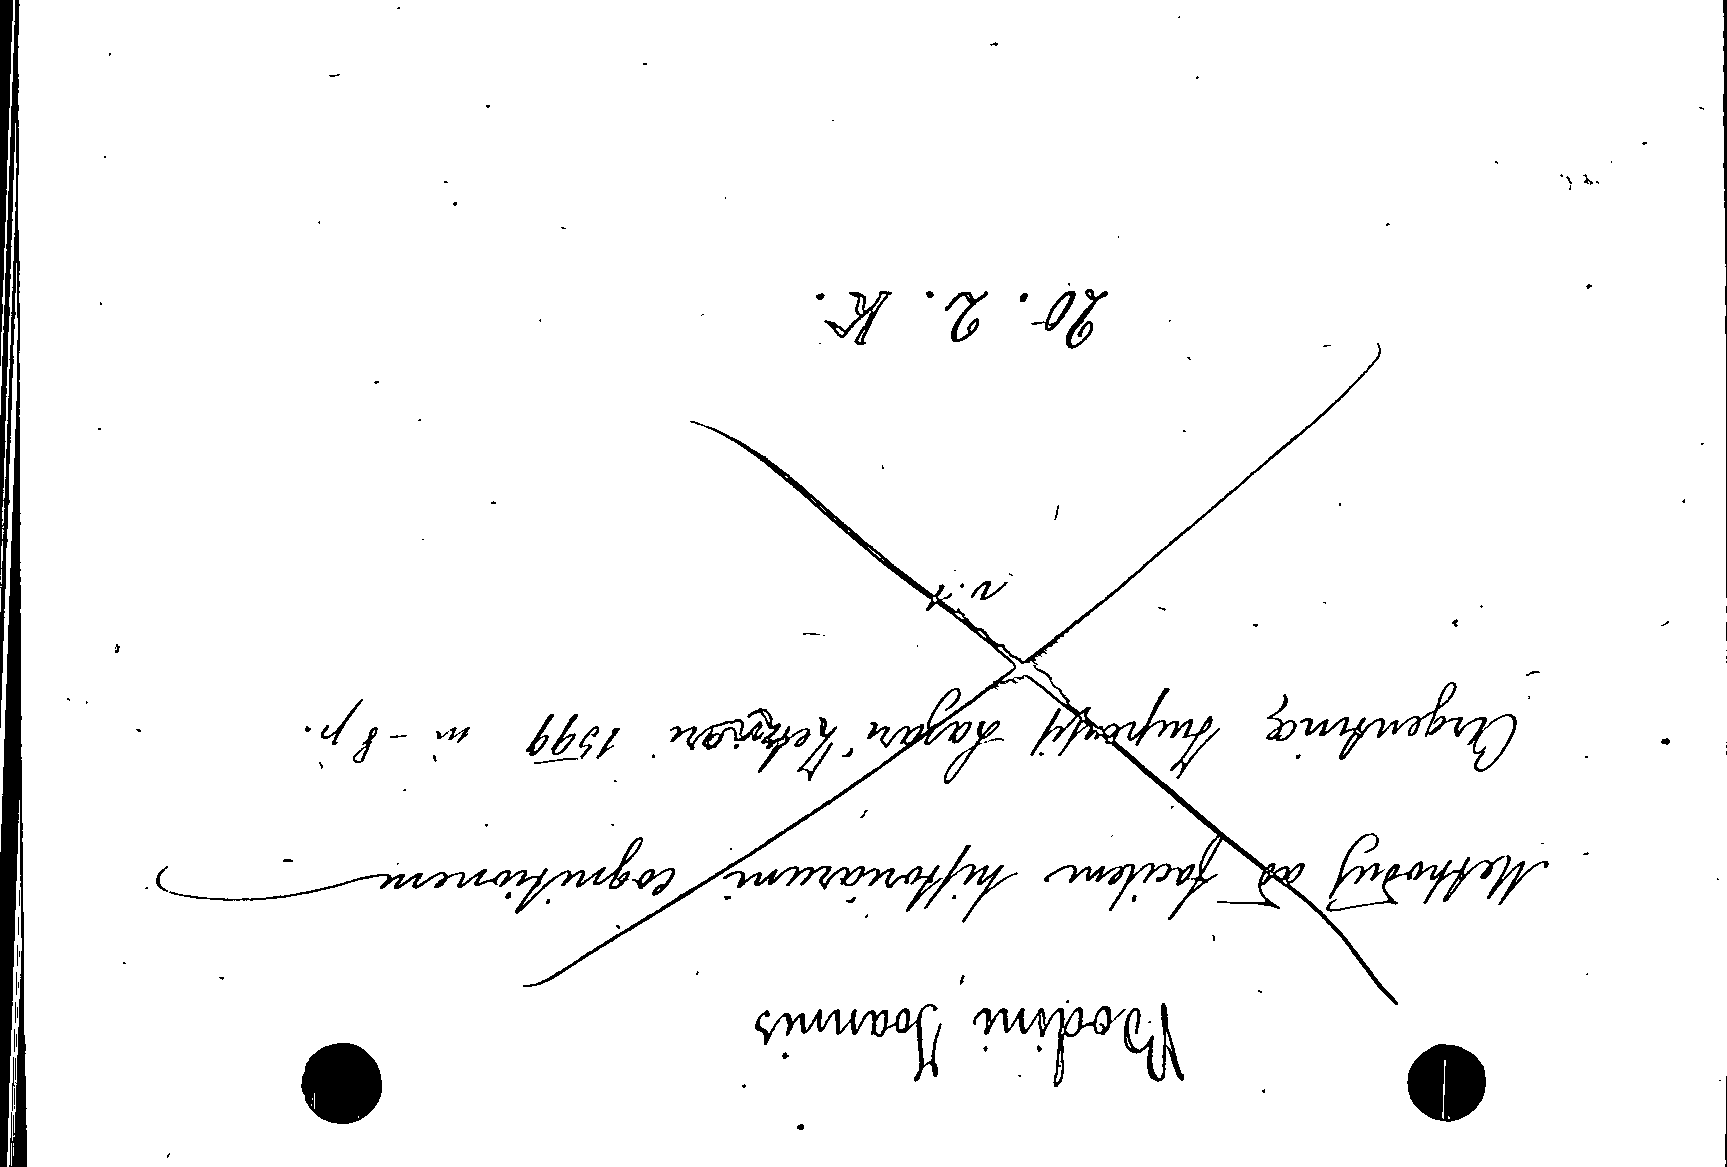 Bodini Joannis
Methodus ad facilem historiarum cognitionem
Argentinæ Impensis Lazari Zetzneri 1599 in-8 p.
v. 1
20. 2. K.